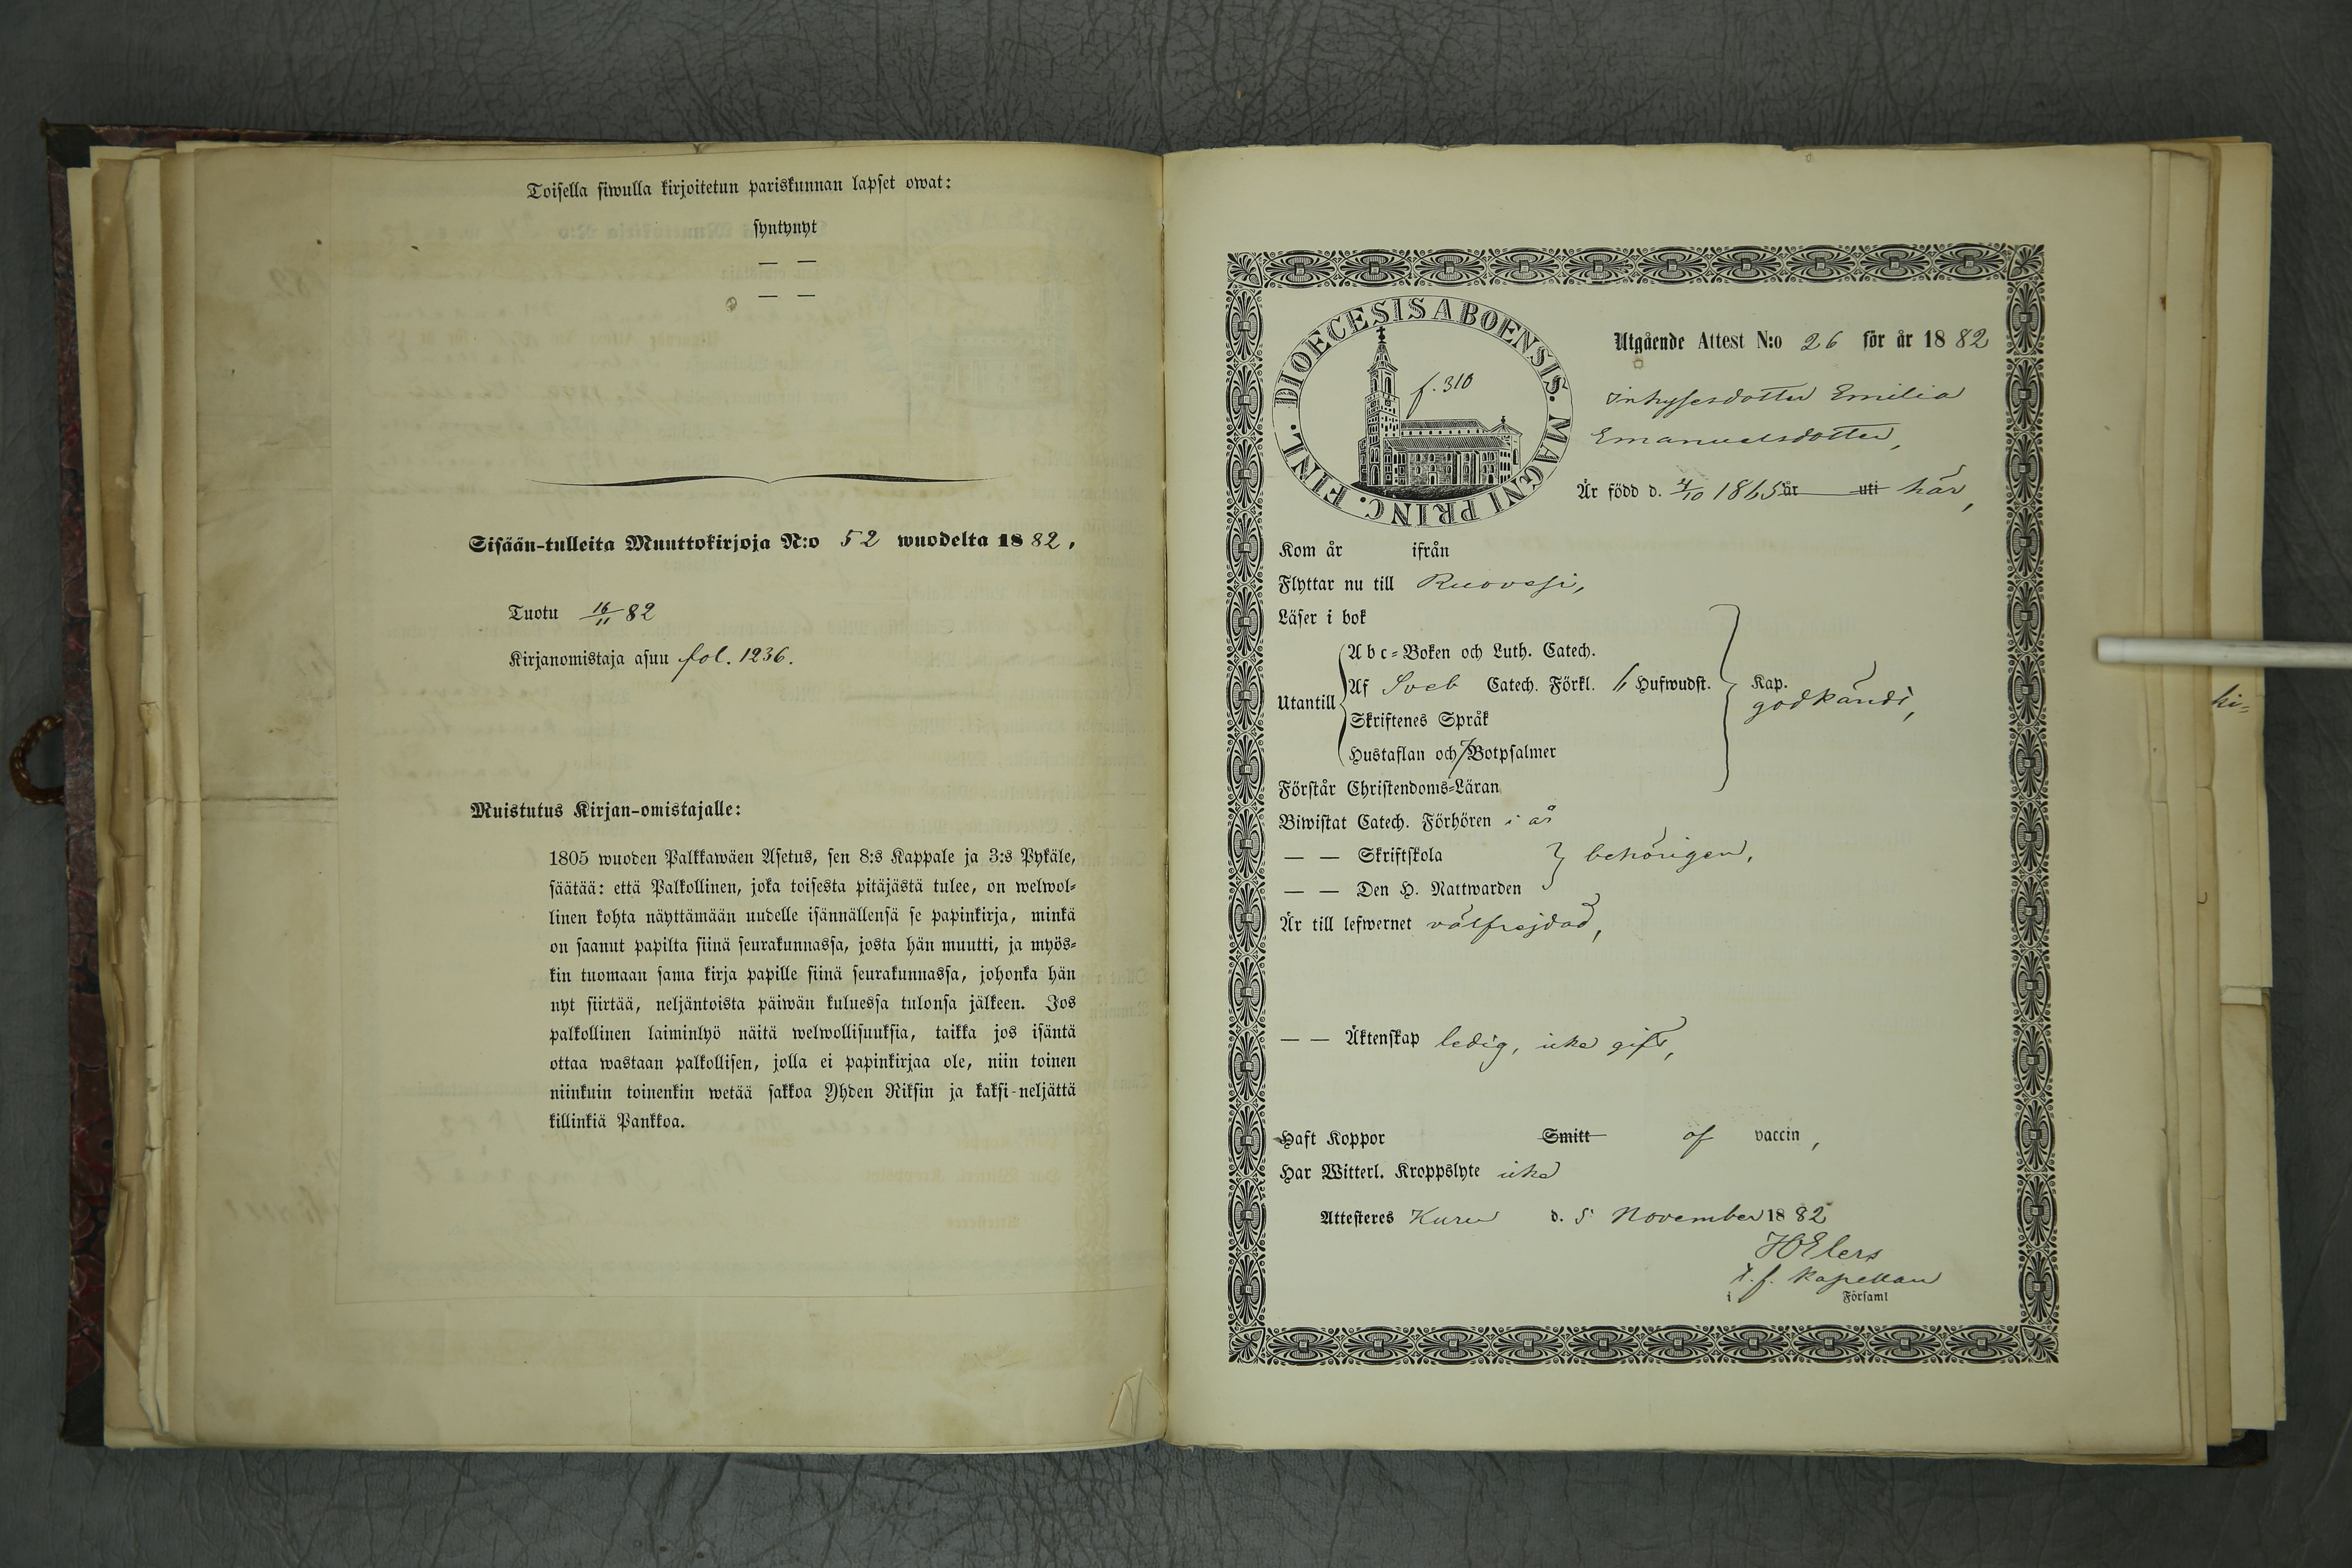 Toisella siwulla kirjoitetun pariskunnan lapset owat:
syntynyt
— —
— —
Sisään-tulleita Muuttokirjoja N:o 52 wuodelta 1882.
Tuotu 16/11 82
Kirjanomistaja asuu fol. 1236.
Muistutus Kirjan-omistajalle:
1805 wuoden Palkkawäen Asetus, sen 8:s Kappale ja 3:s Pykäle,
säätää: että Palkollinen, joka toisesta pitäjästä tulee, on welwol-
linen kohta näyttämään uudelle isännällensä se papinkirja, minkä
on saanut papilta siinä seurakunnassa, josta hän muutti, ja myös-
kin tuomaan sama kirja papille siinä seurakunnassa, johonka hän
nyt siirtää, neljäntoista päiwän kuluessa tulonsa jälkeen. Jos
palkollinen laiminlyö näitä welwollisuuksia, taikka jos isäntä
ottaa wastaan palkollisen, jolla ei papinkirjaa ole, niin toinen
niinkuin toinenkin wetää sakkoa Yhden Riksin ja kaksi-neljättä
killinkiä Pankkoa.
DIOECESIS ABOENSIS. MAGNI PRINC. FINL.
f. 310
Utgående Attest N:o 26 för år 1882
inhysesdotter Emilia
Emanuelsdotter,
Är född d. /10 1865 år uti här,
Kom år ifrån
Flyttar nu till Ruovesi,
Läser i bok
Utantill
Abc-Boken och Luth. Catech.
Af Sveb Catech. Förkl. Hufwudst. Kap.
godkändt,
Skriftenes Språk
Hustaflan och 7 Botpsalmer
Förstår Christendoms-Läran
Biwistat Catech. Förhören i år
— — Skriftskola
behörigen,
— — Den H. Nattwarden
Är till lefwernet välfrejdad,
— — Äktenskap ledig, icke gift,
Haft Koppor Smitt af vaccin,
Har Witterl. Kroppslyte icke
Attesteres Kuru d. 5 November 1882
HOElers
t. f. Kapellan
i Församl
hi-